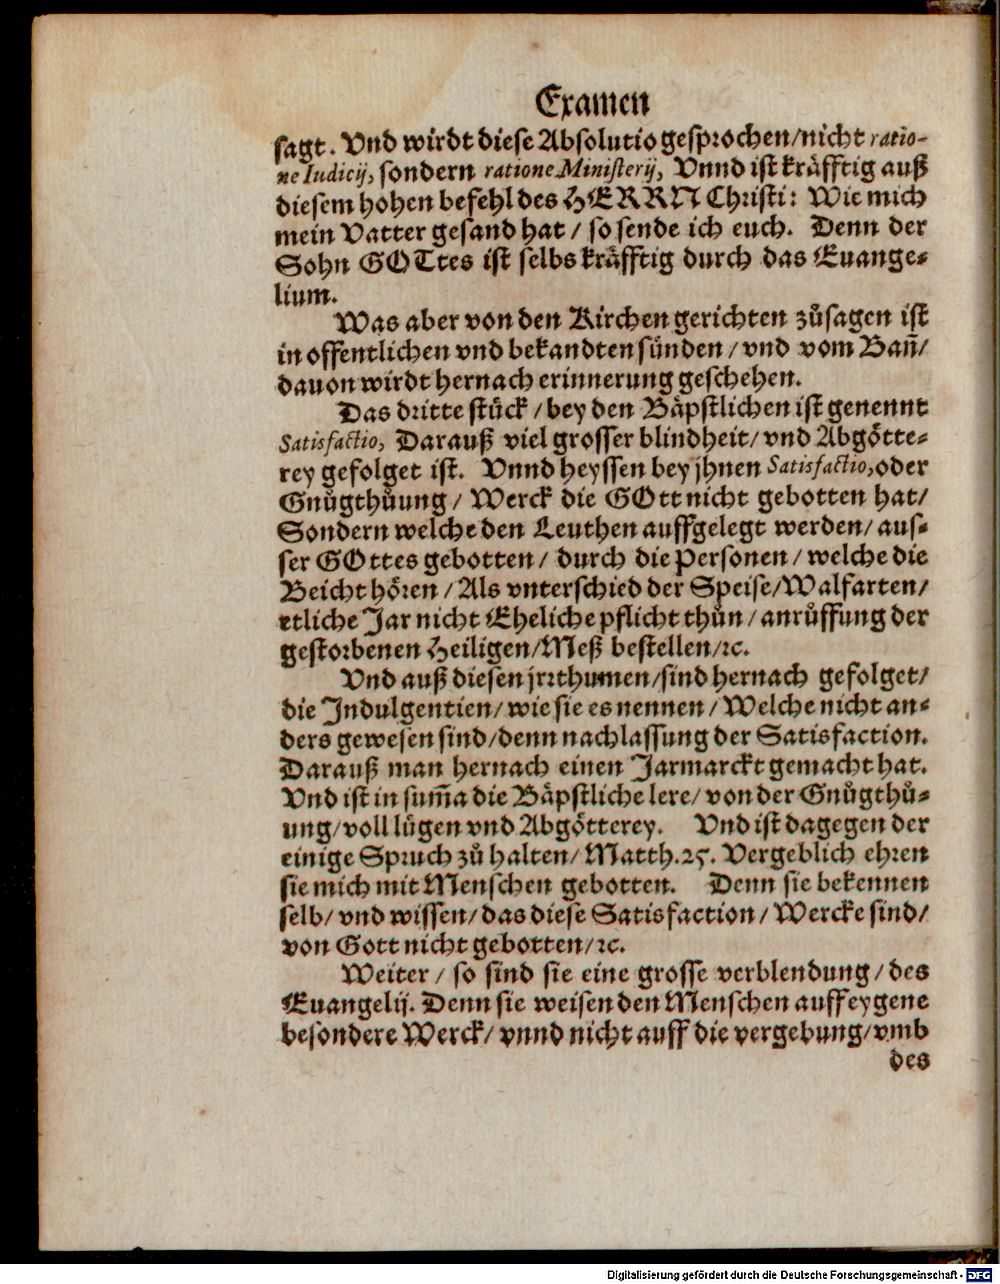 Examen
sagt. Vnd wirdt diese Absolutio gesprochen/nicht ratio-
ne Iudicij, sondern ratione Ministerij, Vnnd ist kräfftig auß
diesem hohen befehl des HERRN Christi: Wie mich
mein Vatter gesand hat / so sende ich euch. Denn der
Sohn GOTtes ist selbs kräfftig durch das Euange-
lium.
Was aber von den Kirchen gerichten zůsagen ist
in offentlichen vnd bekandten sünden / vnd vom Bañ/
dauon wirdt hernach erinnerung geschehen.
Das dritte stück / bey den Bäpstlichen ist genennt
Satisfactio, Darauß viel grosser blindheit/ vnd Abgötte-
rey gefolget ist. Vnnd heyssen bey jhnen Satisfactio, oder
Gnůgthůung / Werck die GOtt nicht gebotten hat/
Sondern welche den Leuthen auffgelegt werden/ aus-
ser GOttes gebotten / durch die Personen / welche die
Beicht hören / Als vnterschied der Speise/Walfarten/
etliche Jar nicht Eheliche pflicht thůn / anrůffung der
gestorbenen Heiligen/Meß bestellen/ꝛc.
Vnd auß diesen jrrthumen/sind hernach gefolget/
die Indulgentien/ wie sie es nennen / Welche nicht an-
ders gewesen sind/denn nachlassung der Satisfaction.
Darauß man hernach einen Jarmarckt gemacht hat.
Vnd ist in sum̃a die Bäpstliche lere/ von der Gnůgthů-
ung/voll lügen vnd Abgötterey. Vnd ist dagegen der
einige Spruch zů halten/ Matth.25. Vergeblich ehren
sie mich mit Menschen gebotten. Denn sie bekennen
selb/ vnd wissen/das diese Satisfaction / Wercke sind/
von Gott nicht gebotten/ꝛc.
Weiter / so sind sie eine grosse verblendung/des
Euangelij. Denn sie weisen den Menschen auff eygene
besondere Werck/ vnnd nicht auff die vergebung/vmb
des
Digitalisierung gefördert durch die Deutsche Forschungsgemeinschaft - DFG